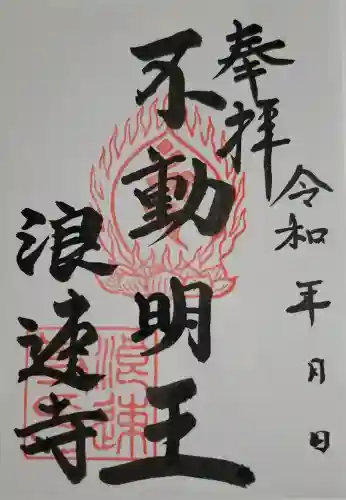 奉拝
令和 年 月 日
不動明王
浪速寺
浪速寺